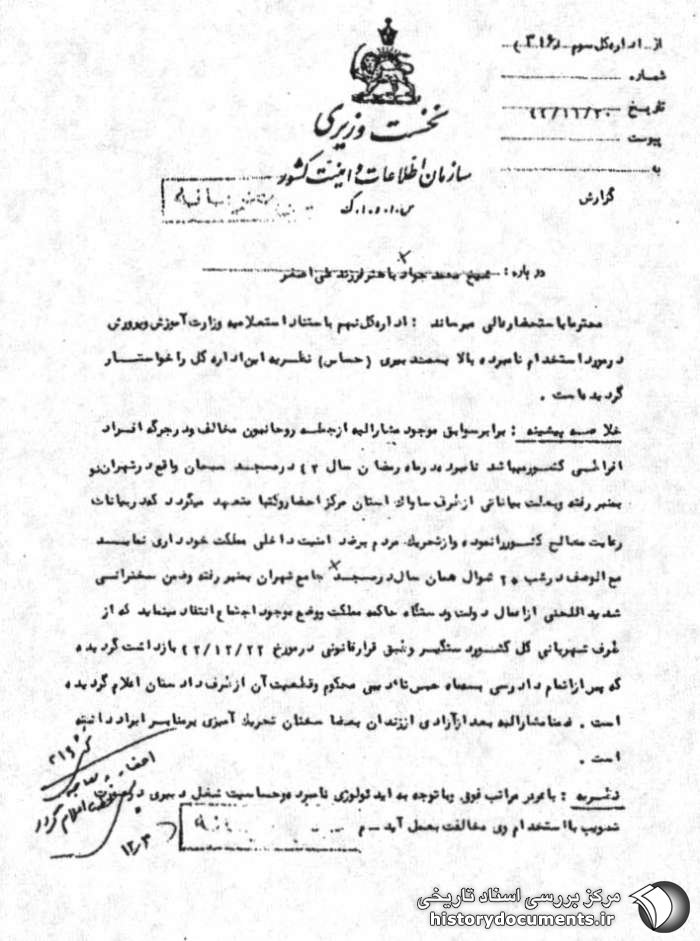 از اداره کل سوم (۳۱۶)
شماره
تاریخ ۴۴/۱۱/۲۰
پیوست
به
گزارش
نخست وزیری
سازمان اطلاعات و امنیت کشور
س.ا.و.ا.ک
درباره : شیخ محمد جواد باهنر فرزند علی اصغر
محترما باستحضار عالی میرساند : اداره کل نهم باستناد استعلامیه وزارت آموزش و پرورش
در مورد استخدام نامبرده بالا بسمت دبیری (حساس) نظریه این اداره کل را خواستار
گردیده است .
خلاصه پیشینه : برابر سوابق موجود مشارالیه از جمله روحانیون مخالف و در جرگه افراد
افراطی کشور میباشد نامبرده در ماه رمضان سال ۴۲ در مسجد واقع در شهران نو
بمنبر رفته و بعلت بیاناتی از طرف ساواک استان مرکز احضار و کتبا متعهد میگردد که در بیانات
رعایت مصالح کشور را نموده و از تحریک مردم بر ضد امنیت داخلی مملکت خودداری نماید
مع الوصف در شب ۲۵ شوال همان سال در مسجد جامع شهران بمنبر رفته و ضمن سخنرانی
شدید اللحنی از اعمال دولت و دستگاه حاکمه مملکت و وضع موجود اجتماع انتقاد مینماید که از
طرف شهربانی کل کشور دستگیر و طبق قرار قانونی در مورخ ۴۲/۱۲/۲۲ بازداشت گردیده
که پس از اتمام دادرسی بسه ماه حبس تادیبی محکوم و قطعیت آن از طرف دادستان اعلام گردیده
است . ضمنا مشارالیه بعد از آزادی از زندان بعضا سخنان تحریک آمیزی بر منابر ایراد داشته
است .
نظریه : با عرض مراتب فوق و با توجه به ایدئولوژی نامبرده و حساسیت شغل دبیری در صورت
تصویب با استخدام وی مخالفت بعمل آید م
۳۱۶
اعلام گردد
۱۲/۳
مرکز بررسی اسناد تاریخی
historydocuments.ir